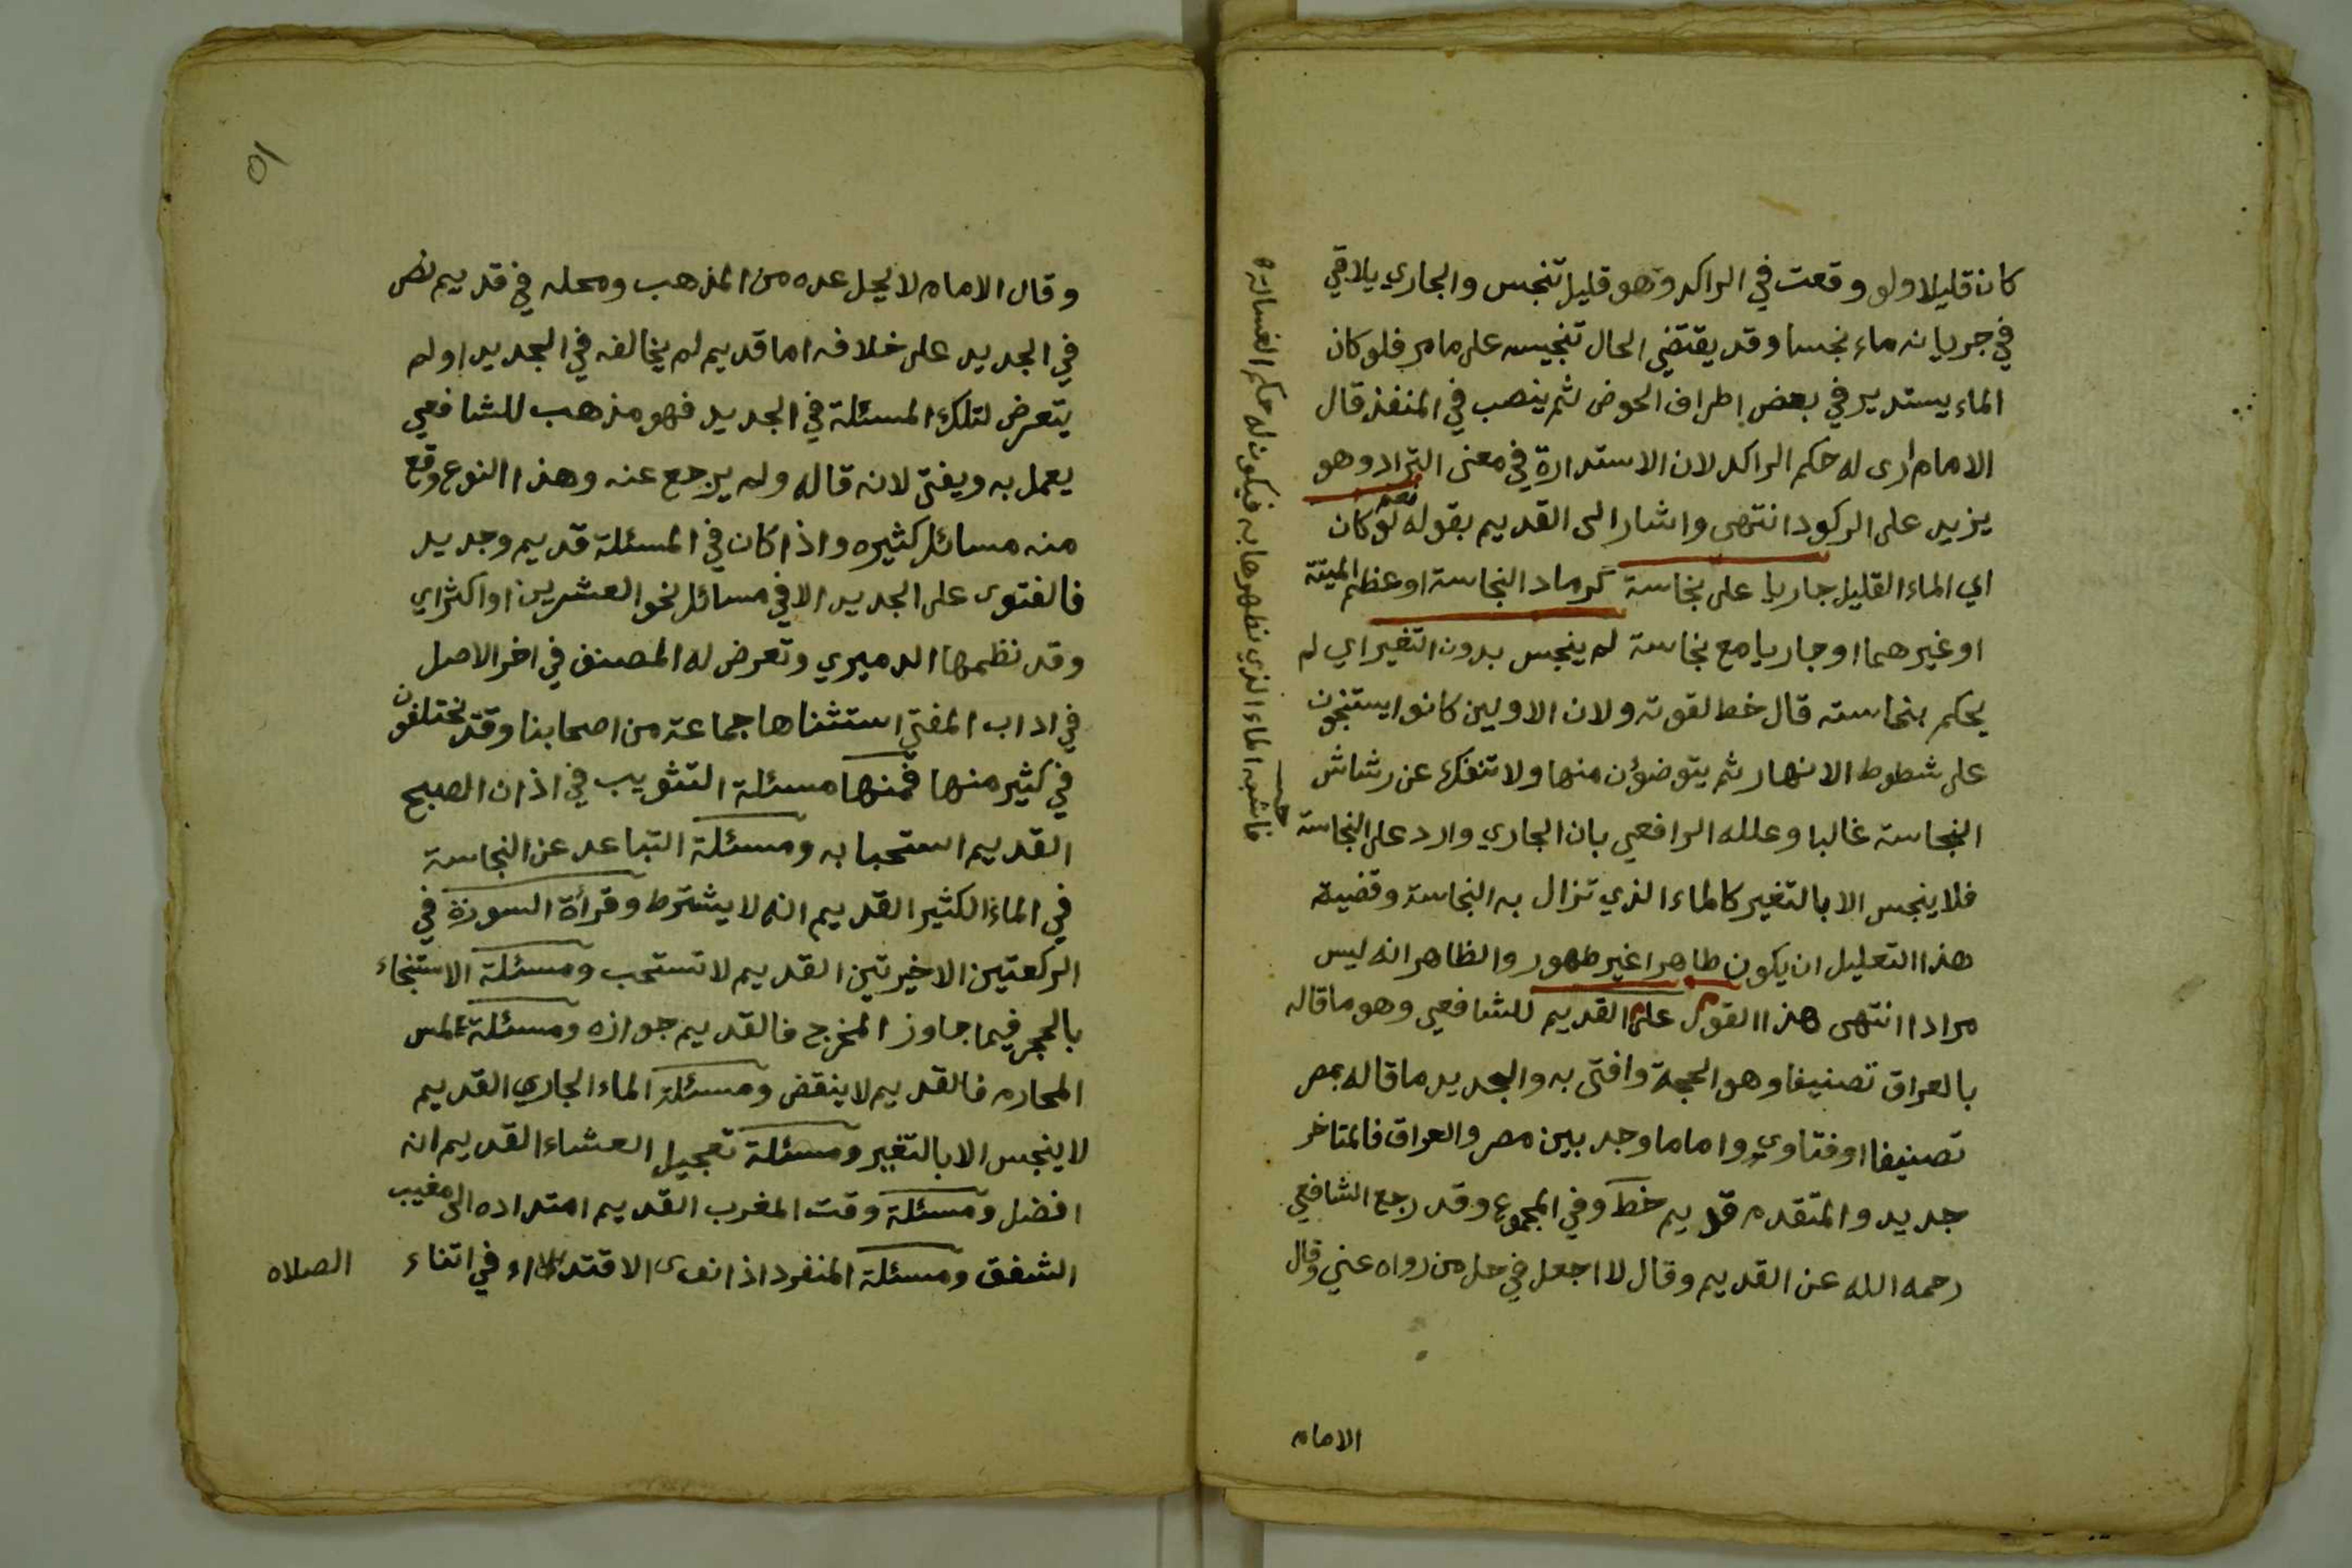 كان قليلا ولو وقعت في الراكد وهو قليل تنجس والجاري يلاقي
في جريانه ماء نجسا وقد يقتضي الحال تنجيسه على مامر فلو كان
الماء يستدير في بعض اطراف الحوض ثم ينصب في المنفذ قال
الامام ارى له حكم الراكد لان الاستدارة في معنى التراد وهو
يزيد على الركود انتهى واشار الى القديم بقوله نعم لو كان
اي الماء القليل جاريا على نجاسة كرماد النجاسة او عظم الميتة
او غيرهما او جاريا مع نجاسة لم ينجس بدون التغير اي لم
يحكم بنجاسته قال خط لقوته ولان الاولين كانوا يستنجون
على شطوط الانهار ثم يتوضؤن منها ولا تنفك عن رشاش
النجاسة غالبا وعلله الرافعي بان الجاري وارد على النجاسة
فلا ينجس الا بالتغير كالماء الذي تزال به النجاسة وقضية
هذا التعليل ان يكون طاهرا غير طهور والظاهر انه ليس
مرادا انتهى هذا القول على القديم للشافعي وهو ما قاله
بالعراق تصنيفا وهو الحجة وافتى به والجديد ما قاله بمصر
تصنيفا او فتاوي واما ما وجد بين مصر والعراق فالمتاخر
جديد والمتقدم قديم خط وفي المجموع وقد رجع الشافعي
رحمه الله عن القديم وقال لا اجعل في حل من رواه عني وقال
الامام
فاشبه الماء الذي نطهرها به فيكون له حكم الغسالة
وقال الامام لا يحل عده من المذهب ومحله في قديم نص
في الجديد على خلافه اما قديم لم يخالفه في الجديد او لم
يتعرض لتلك المسئلة في الجديد فهو مذهب للشافعي
يعمل به ويفتى لانه قاله ولم يرجع عنه وهذا النوع وقع
منه مسائل كثيره واذا كان في المسئلة قديم وجديد
فالفتوى على الجديد الا في مسائل نحو العشرين او اكثر اي
وقد نظمها الدميري وتعرض له المصنف في اخر الاصل
في اداب المفتي استثناها جماعة من اصحابنا وقد يختلفون
في كثير منها فمنها مسئلة التثويب في اذان الصبح
القديم استحبابه ومسئلة التباعد عن النجاسة
في الماء الكثير القديم انه لا يشترط وقرأة السورة في
الركعتين الاخيرتين القديم لا تستحب ومسئلة الاستنجاء
بالحجر فيما جاوز المخرج فالقديم جوازه ومسئلة لمس
المحارم فالقديم لا ينقض ومسئلة الماء الجاري القديم
لا ينجس الا بالتغير ومسئلة تعجيل العشاء القديم انه
افضل ومسئلة وقت المغرب القديم امتداده الى مغيب
الشفق ومسئلة المنفرد اذا نوى الاقتداء في اثناء
الصلاه